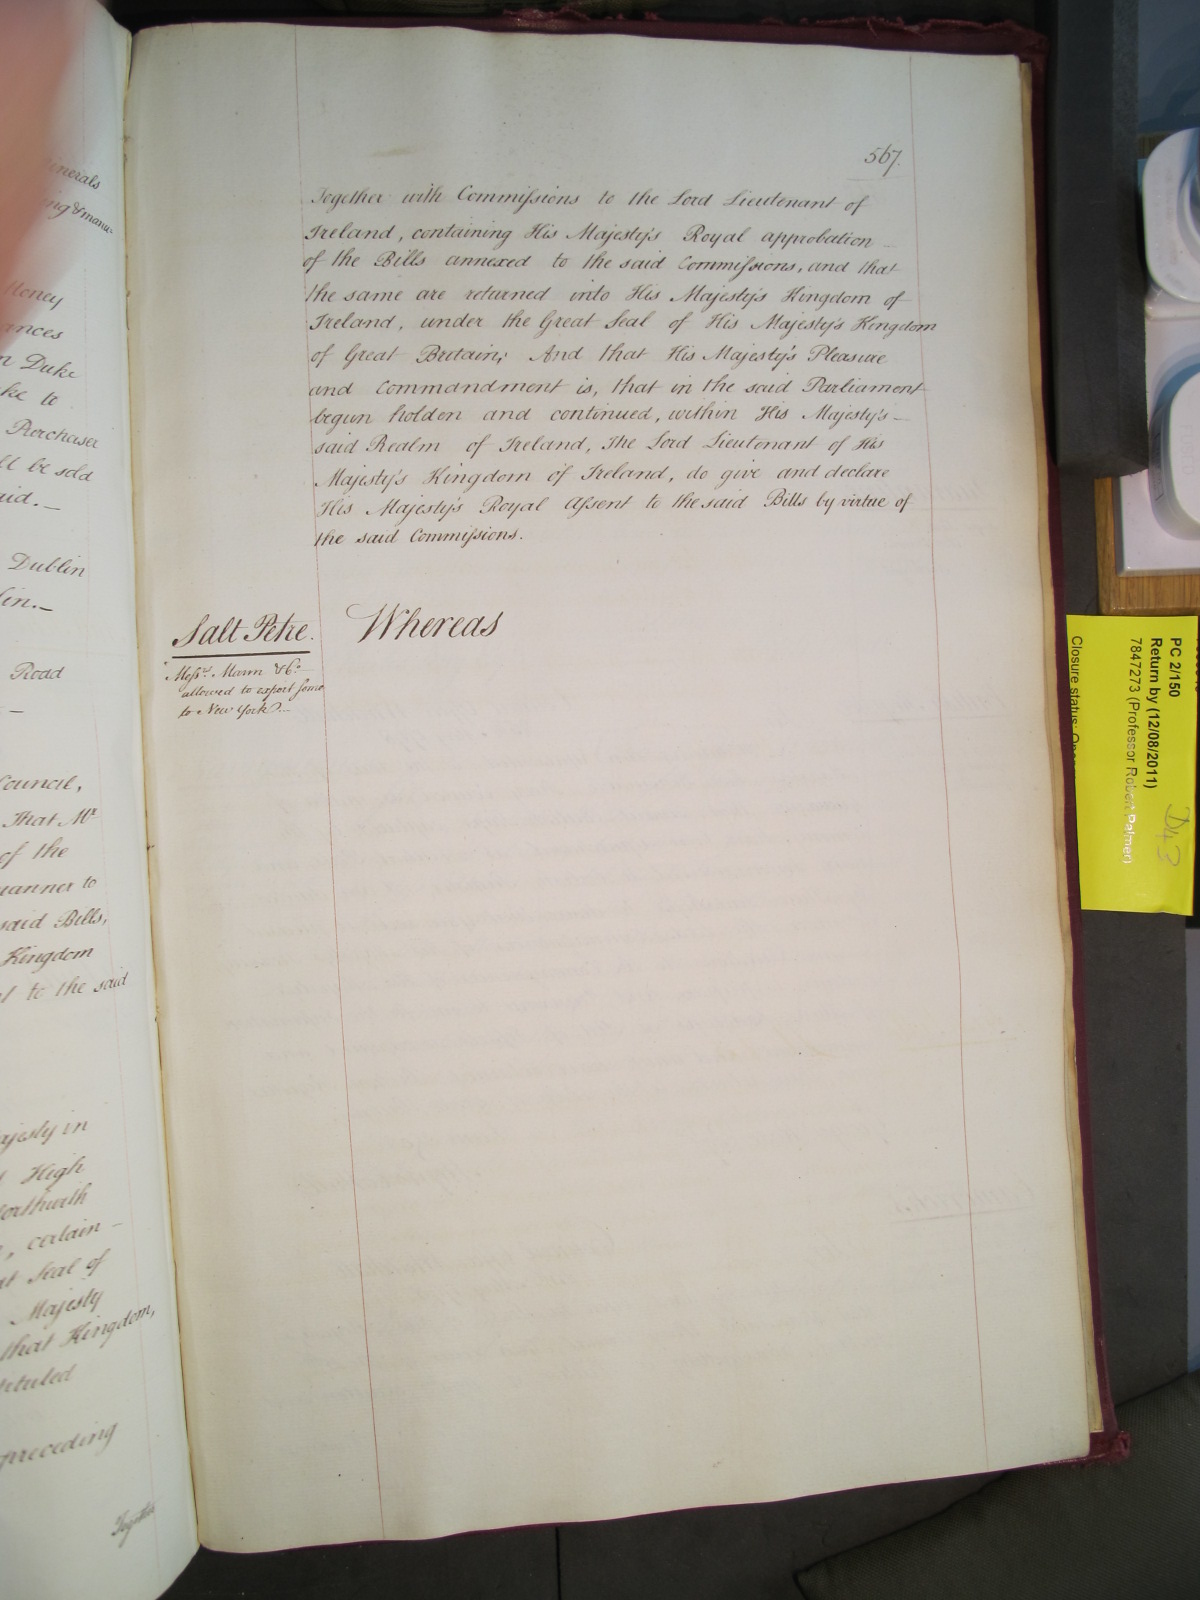 567.
Together with Commiſsions to the Lord Lieutenant of
Ireland, containing His Majesty's Royal approbation
of the Bills annexed to the said Commiſsions, and that
the same are returned into His Majesty's Kingdom of
Ireland, under the Great Seal of His Majesty's Kingdom
of Great Britain; And that His Majesty's Pleasure
and Commandment is, that in the said Parliament
begun holden and continued, within His Majesty's
said Realm of Ireland, The Lord Lieutenant of His
Majesty's Kingdom of Ireland, do give and declare
His Majesty's Royal Aſsent to the said Bills by virtue of
the said Commiſsions.
Salt Petre. Whereas
Meſsrs. Mann & Co.
allowed to export some
to New York.
inerals
ing & manu-
Money
ances
n Duke
ke to
Purchaser
ll be sold
aid.
Dublin
lin.
Road
Council,
That Mr
of the
manner to
said Bills,
Kingdom
l to the said
ajesty in
High
orthwith
, certain
at Seal of
Majesty
that Kingdom,
tituled
preceding
Together
PC 2/150
Return by (12/08/2011)
7847273 (Professor Robert Palmer)
Closure status: Open
D43